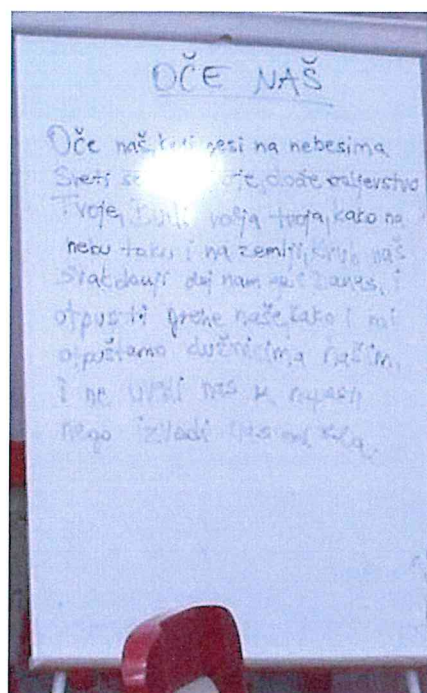 OČE NAŠ
Oče naš koji jesi na nebesima
Sveti se dođe
Tvoje, volja tvoja, kako na
nebu tako i na zemlji, kruh naš
daj nam danas, i
otpusti naše, kako i mi
otpuštamo dužnicima našim,
i ne uvedi nas u napast
nego izbavi nas od zla.